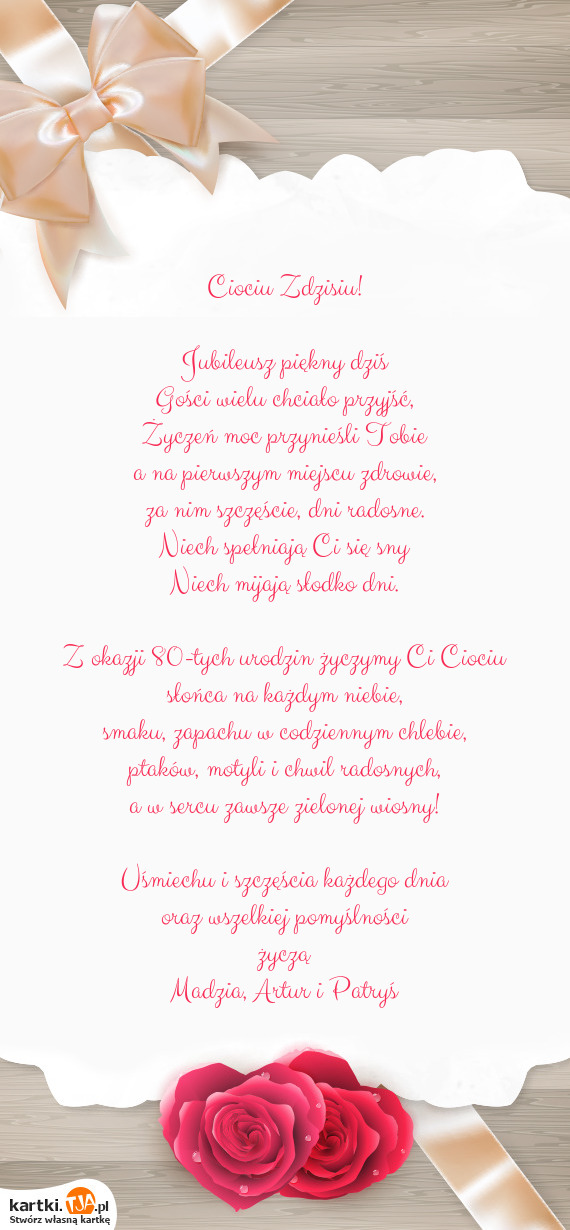 Ciociu Zdzisiu!
Jubileusz piękny dziś
Gości wielu chciało przyjść,
Życzeń moc przynieśli Tobie
a na pierwszym miejscu zdrowie,
za nim szczęście, dni radosne.
Niech spełniają Ci się sny
Niech mijają słodko dni.
Z okazji 80-tych urodzin życzymy Ci Ciociu
słońca na każdym niebie,
smaku, zapachu w codziennym chlebie,
ptaków, motyli i chwil radosnych,
a w sercu zawsze zielonej wiosny!
Uśmiechu i szczęścia każdego dnia
oraz wszelkiej pomyślności
życzą
Madzia, Artur i Patryś
kartki.TJA.pl
Stwórz własną kartkę